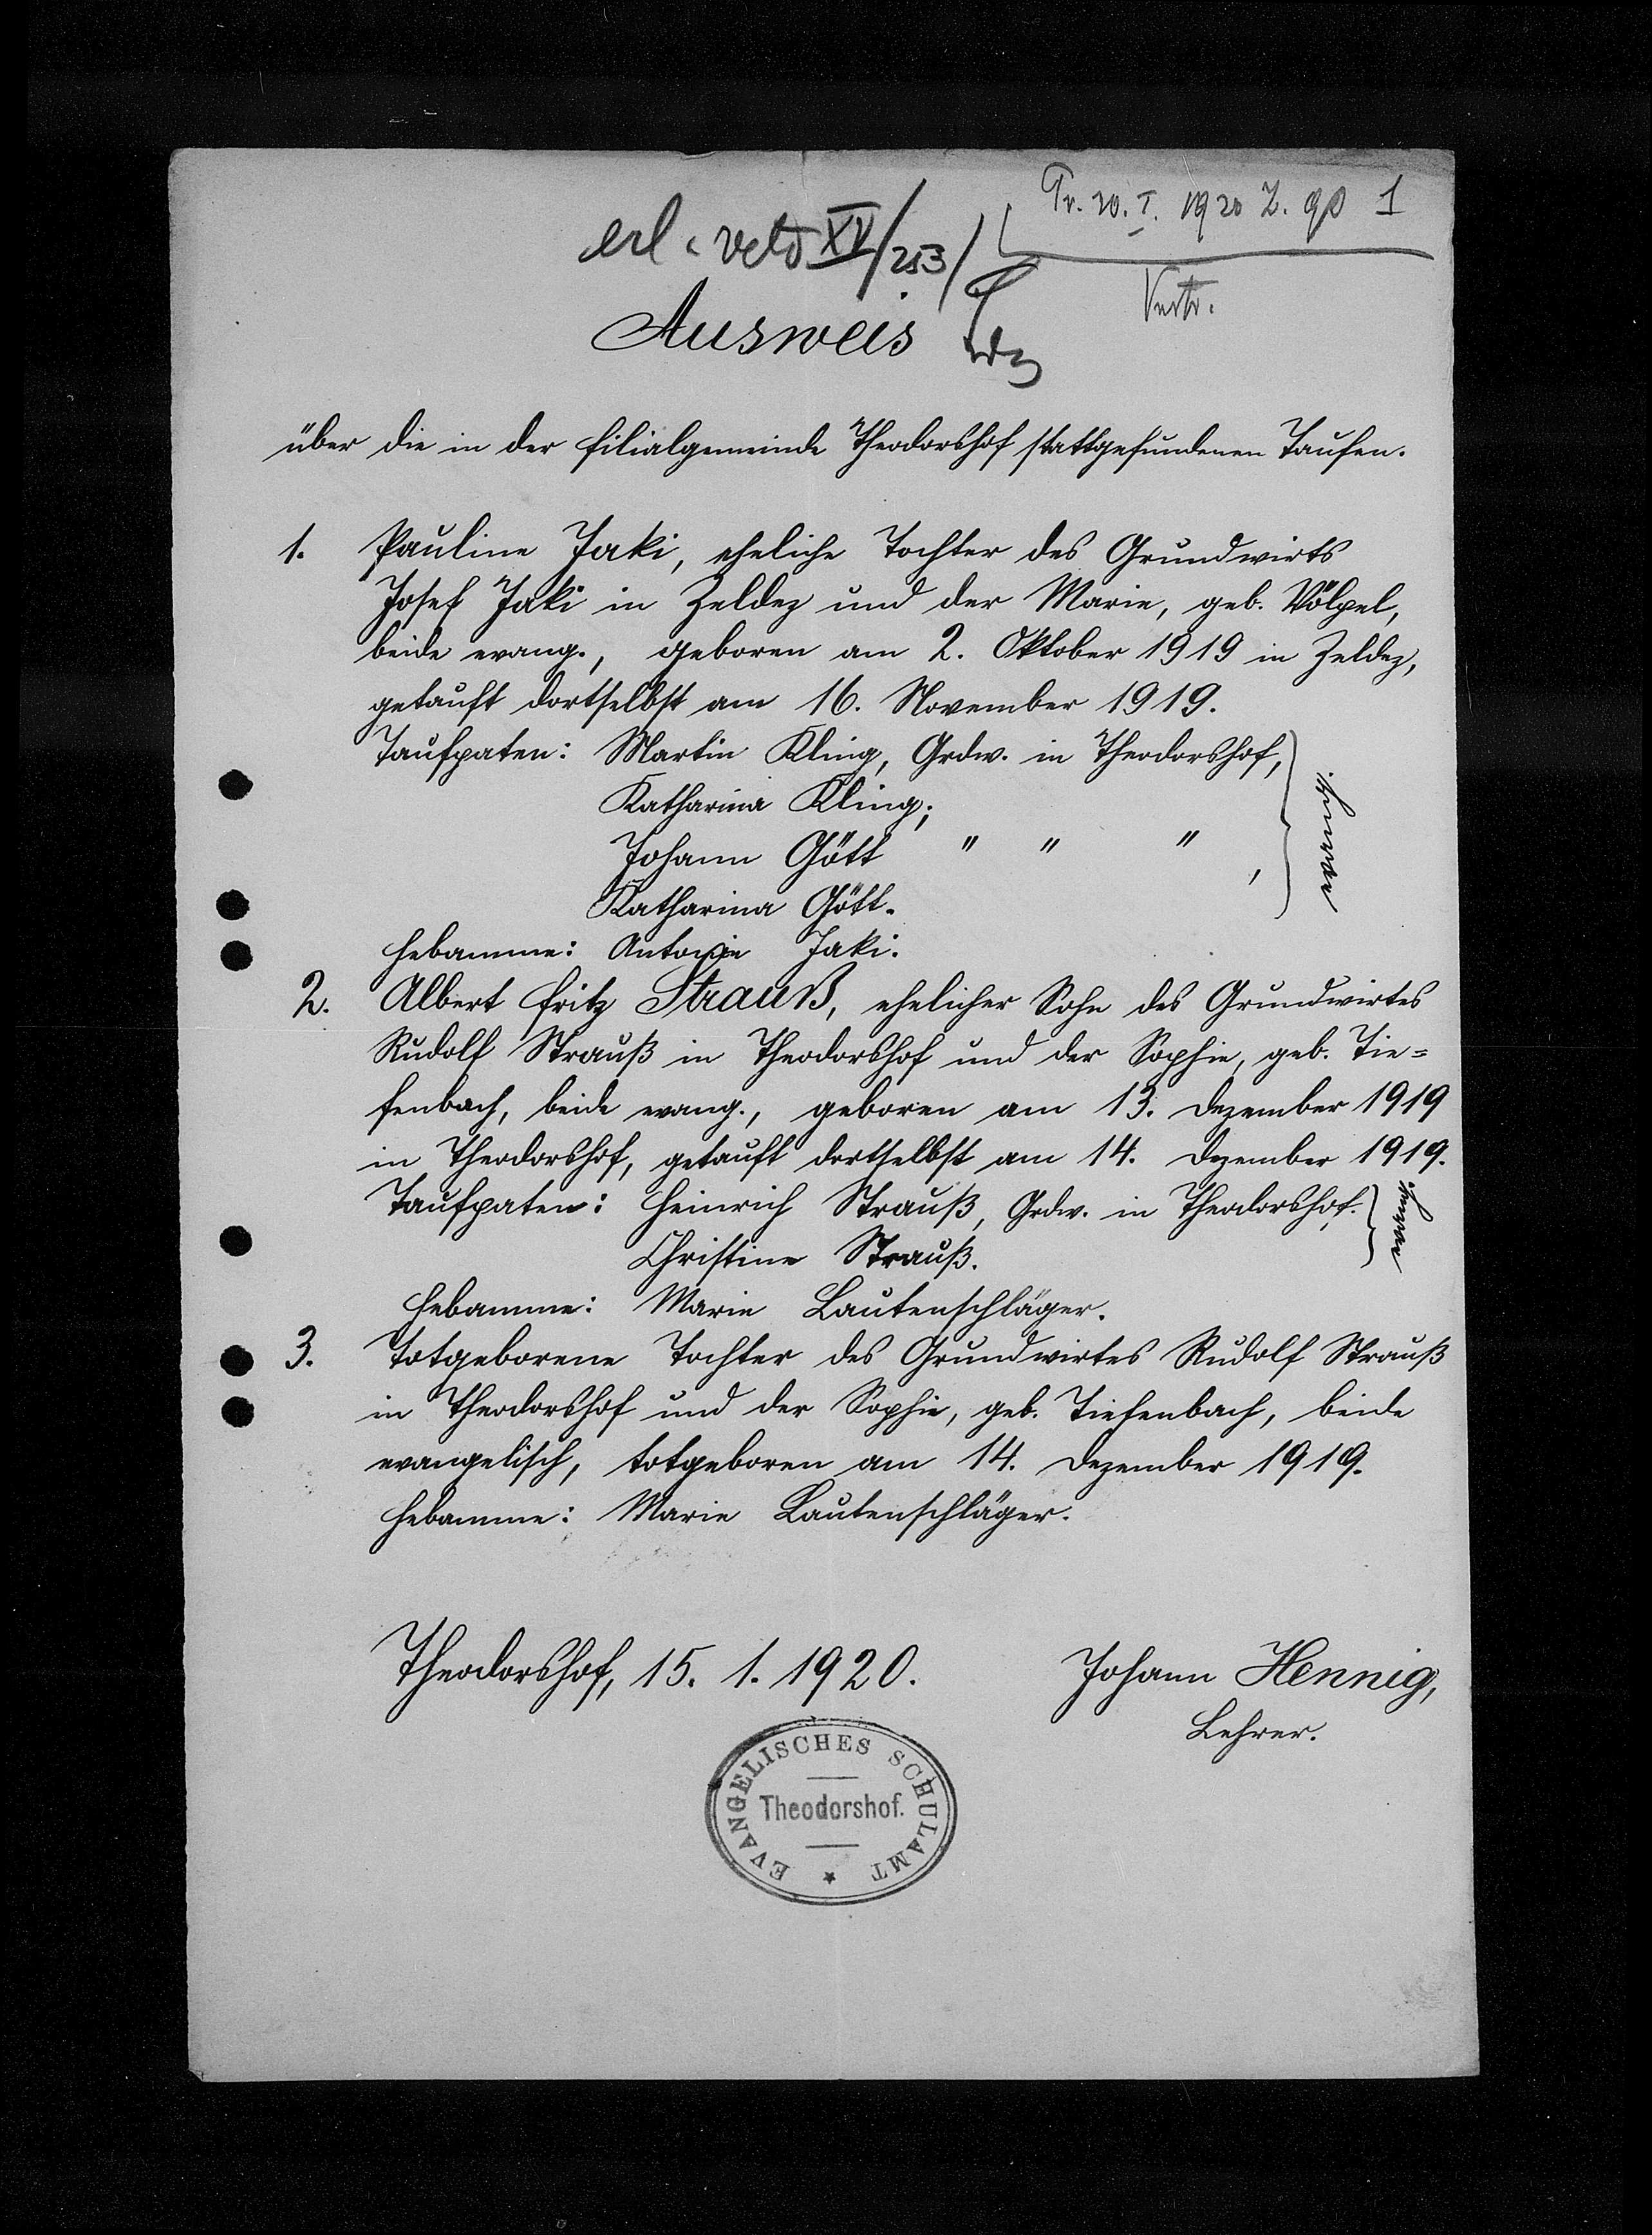 Pr. 20. I. 1920 Z. 98 1
erl.
XV/253/
Ausweis
über die in der Filialgemeinde Theodorshof stattgefundenen Taufen.
1. Pauline Jaki, eheliche Tochter des Grundwirts
Josef Jaki in Zeldez und der Marie, geb. Völpel,
beide evang., geboren am 2. Oktober 1919 in Zeldez,
getauft dortselbst am 16. November 1919.
Taufpaten: Martin Kling, Grdw. in Theodorshof,
Katharina Kling;
Johann Gött " " " ,
Katharina Gött.
evang.
Hebamme: Antonie Jaki.
2. Albert Fritz Strauß, ehelicher Sohn des Grundwirtes
Rudolf Strauß in Theodorshof und der Sophie, geb. Tie=
fenbach, beide evang., geboren am 13. Dezember 1919
in Theodorshof, getauft dortselbst am 14. Dezember 1919.
Taufpaten: Heinrich Strauß, Grdw. in Theodorshof.
Christine Strauß.
evang.
Hebamme: Marie Lautenschläger.
3. Totgeborene Tochter des Grundwirtes Rudolf Strauß
in Theodorshof und der Sophie, geb. Tiefenbach, beide
evangelisch, totgeboren am 14. Dezember 1919.
Hebamme: Marie Lautenschläger.
Theodorshof, 15. 1. 1920.
Johann Hennig,
Lehrer.
EVANGELISCHES SCHULAMT
Theodorshof.